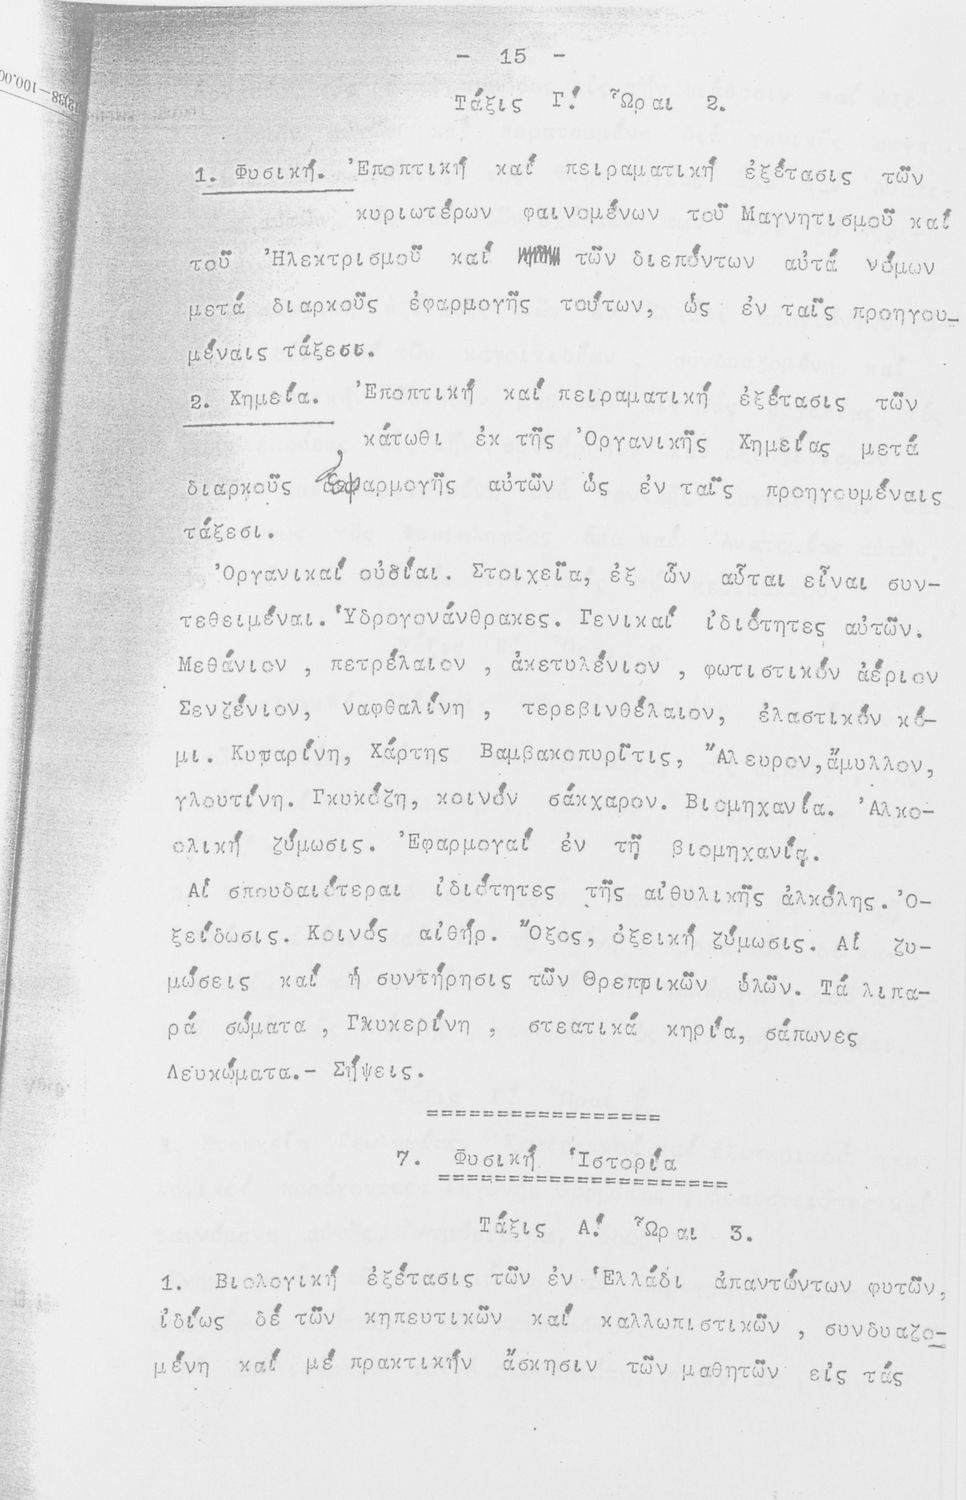 - 15 -
Τάξις Γ΄. Ὧραι 2.
1. Φυσική. Ἐποπτική καί πειραματική ἐξέτασις τῶν
κυριωτέρων φαινομένων τοῦ Μαγνητισμοῦ καί
τοῦ Ἠλεκτρισμοῦ καί τῶν διεπόντων αὐτά νόμων
μετά διαρκοῦς ἐφαρμογῆς τούτων, ὡς ἐν ταῖς προηγου-
μέναις τάξεσι.
2. Χημεία. Ἐποπτική καί πειραματική ἐξέτασις τῶν
κάτωθι ἐκ τῆς Ὀργανικῆς Χημείας μετά
διαρκοῦς ἐφαρμογῆς αὐτῶν ὡς ἐν ταῖς προηγουμέναις
τάξεσι.
Ὀργανικαί οὐσίαι. Στοιχεῖα, ἐξ ὧν αὗται εἶναι συν-
τεθειμέναι. Ὑδρογονάνθρακες. Γενικαί ἰδιότητες αὐτῶν.
Μεθάνιον, πετρέλαιον, ἀκετυλένιον, φωτιστικόν ἀέριον
Σενζένιον, ναφθαλίνη, τερεβινθέλαιον, ἐλαστικόν κό-
μι. Κυταρίνη, Χάρτης Βαμβακοπυρῖτις, Ἄλευρον, ἄμυλλον,
γλουτίνη. Γκυκόζη, κοινόν σάκχαρον. Βιομηχανία. Ἀλκο-
ολική ζύμωσις. Ἐφαρμογαί ἐν τῇ βιομηχανίᾳ.
Αἱ σπουδαιότεραι ἰδιότητες τῆς αἰθυλικῆς ἀλκόλης. Ὀ-
ξείδωσις. Κοινός αἰθήρ. Ὄξος, ὀξεική ζύμωσις. Αἱ ζυ-
μώσεις καί ἡ συντήρησις τῶν θρεπτικῶν ὑλῶν. Τά λιπα-
ρά σώματα, Γλυκερίνη, στεατικά κηρία, σάπωνες
Λευκώματα.- Σήψεις.
=================
7. Φυσική Ἱστορία
=====================
Τάξις Α΄. Ὧραι 3.
1. Βιολογική ἐξέτασις τῶν ἐν Ἑλλάδι ἀπαντώντων φυτῶν,
ἰδίως δέ τῶν κηπευτικῶν καί καλλωπιστικῶν, συνδυαζο-
μένη καί μέ πρακτικήν ἄσκησιν τῶν μαθητῶν εἰς τάς